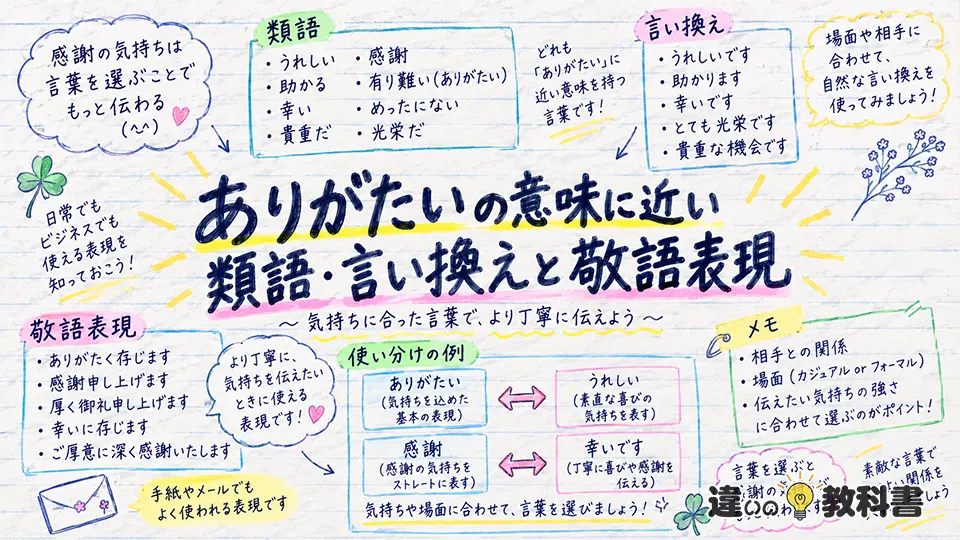 感謝の気持ちは
言葉を選ぶことで
もっと伝わる
(^^)
類語
・うれしい
・助かる
・幸い
・貴重だ
・感謝
・有り難い(ありがたい)
・めったにない
・光栄だ
どれも
「ありがたい」に
近い意味を持つ
言葉です!
言い換え
・うれしいです
・助かります
・幸いです
・とても光栄です
・貴重な機会です
場面や相手に
合わせて、
自然な言い換えを
使ってみましょう!
日常でも
ビジネスでも
使える表現を
知っておこう!
ありがたいの意味に近い
類語・言い換えと敬語表現
〜 気持ちに合った言葉で、より丁寧に伝えよう 〜
敬語表現
・ありがたく存じます
・感謝申し上げます
・厚く御礼申し上げます
・幸いに存じます
・ご厚意に深く感謝いたします
より丁寧に、
気持ちを伝えたい
ときに使える
表現です!
手紙やメールでも
よく使われる表現です
使い分けの例
ありがたい
(気持ちを込めた
基本の表現)
うれしい
(素直な喜びの
気持ちを表す)
感謝
(感謝の気持ちを
ストレートに表す)
幸いです
(丁寧に喜びや感謝を
伝える)
気持ちや場面に合わせて、言葉を選びましょう!
メモ
・相手との関係
・場面(カジュアル or フォーマル)
・伝えたい気持ちの強さ
に合わせて選ぶのがポイント!
言葉を選ぶと
素敵な言葉で
違いの教科書